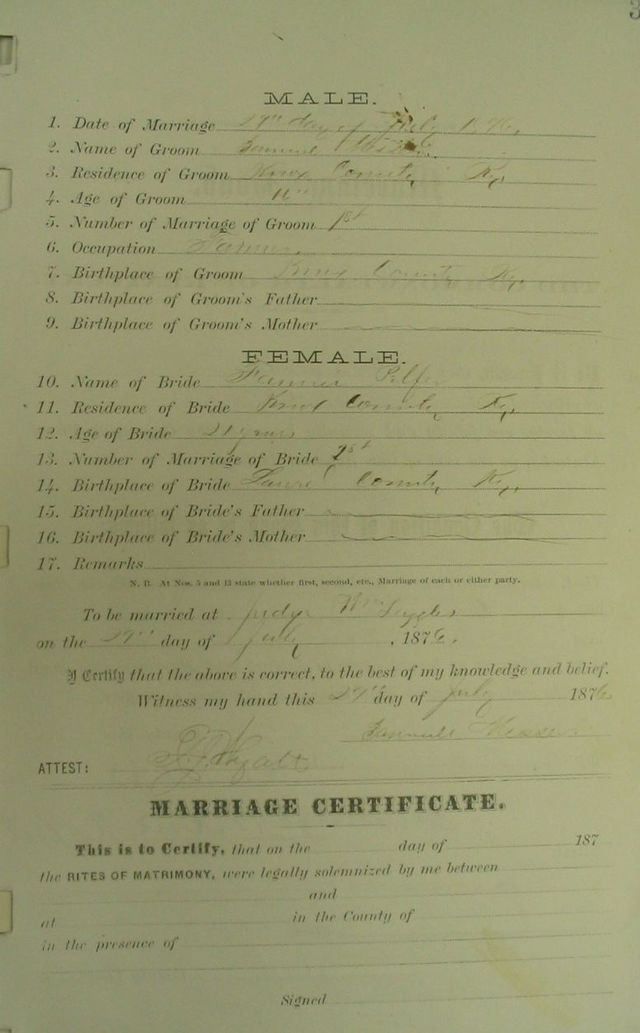 3
MALE.
1. Date of Marriage 29th day of July 1876.
2. Name of Groom Samuel
3. Residence of Groom Knox County Ky,
4. Age of Groom
5. Number of Marriage of Groom 1st
6. Occupation Farmer.
7. Birthplace of Groom Knox County Ky.
8. Birthplace of Groom's Father
9. Birthplace of Groom's Mother
FEMALE.
10. Name of Bride
11. Residence of Bride Knox County Ky,
12. Age of Bride 21 years
13. Number of Marriage of Bride
14. Birthplace of Bride Laurel County Ky,
15. Birthplace of Bride's Father
16. Birthplace of Bride's Mother
17. Remarks
N. B. At Nos. 5 and 13 state whether first, second, etc., Marriage of each or either party.
To be married at Judge Wm
on the 29th day of July, 1876.
I Certify that the above is correct, to the best of my knowledge and belief.
Witness my hand this 29th day of July 1876
Samuel Messer
ATTEST:
MARRIAGE CERTIFICATE.
This is to Certify, that on the day of 187
the RITES OF MATRIMONY, were legally solemnized by me between
and
at in the County of
in the presence of
Signed